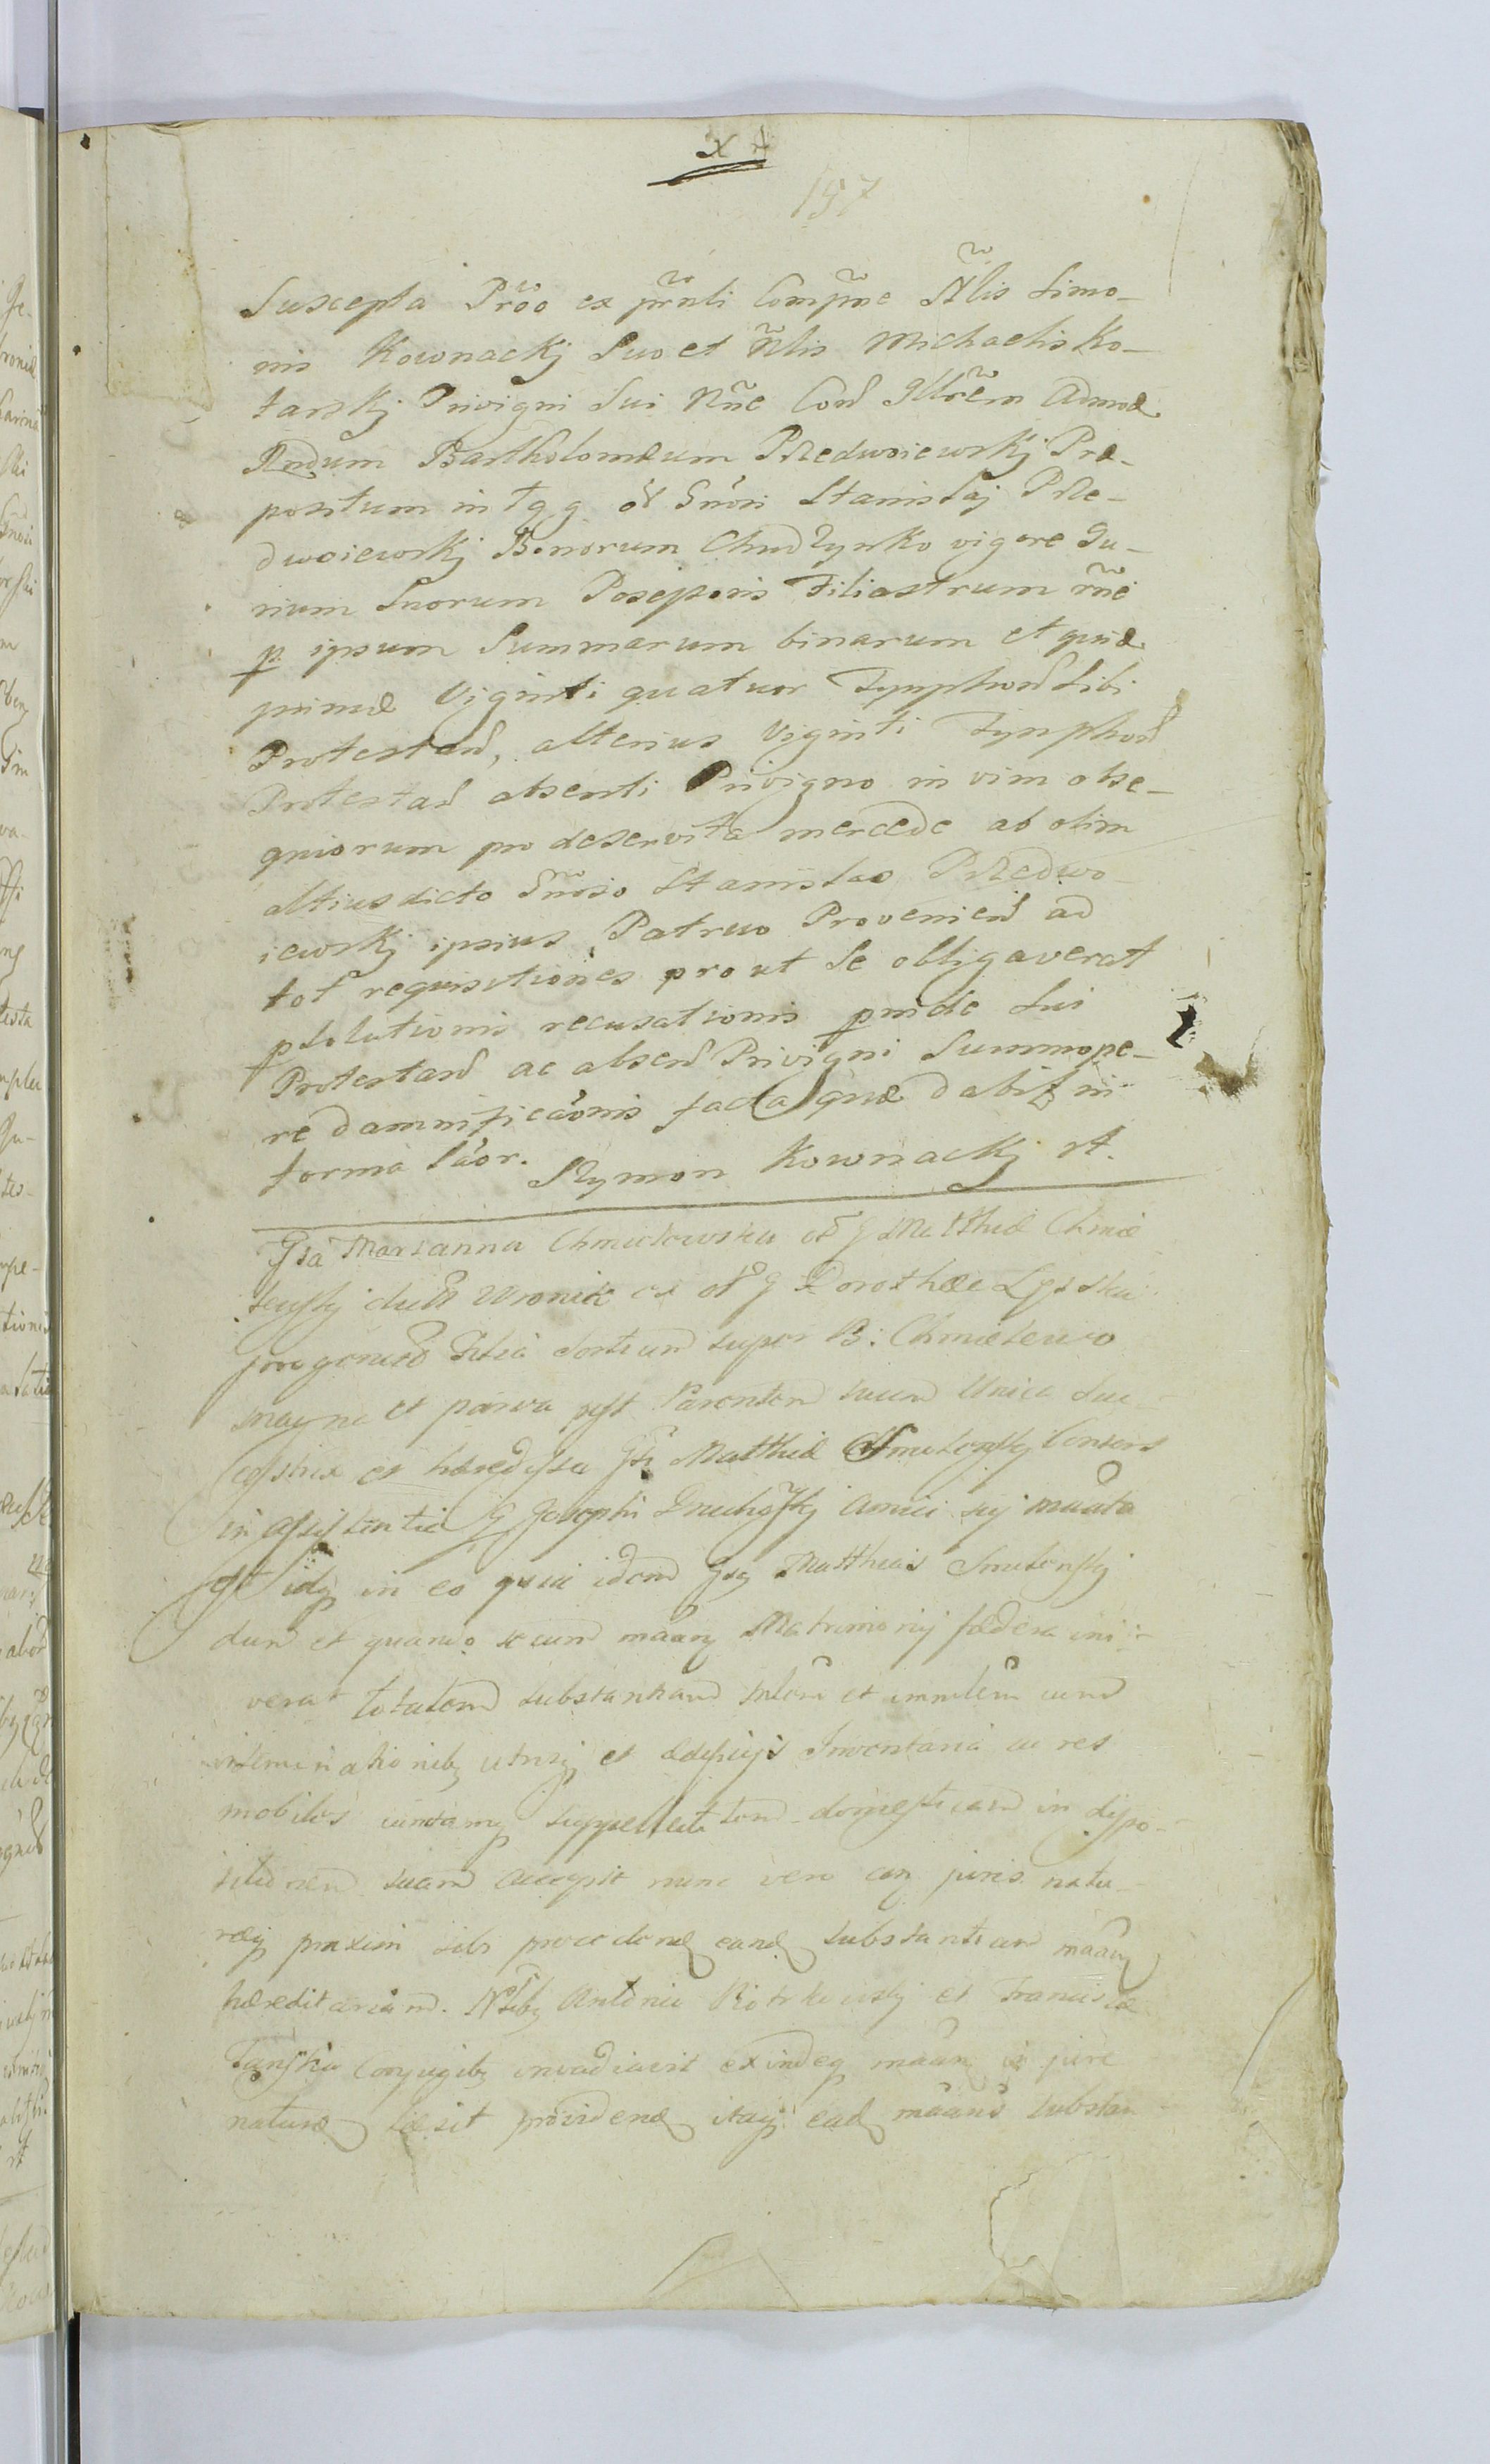 197
Suscepta Prõo ex prñti Compñe Ñlis Simo-
nis Kownackj Suo et Ñlis Michaelis Ko-
tarskj Privigni Sui Nñe Cord Illrẽm Admod
Rndum Bartholomæum Przedwoiewskj Præ-
positum in Gnosi Stanislaj Prze-
dwoiewskj Bonorum Chudzynko vigore Iu-
rium Suorum Possessoris Filiastrum rñe
p ipsum Summarum binarum et quid
primæ Viginti quatuor Tynphord Sibi
Protestand, alterius Viginti Tynphord
Protestad absenti Privigno in vim obse-
quiorum pro deservita mercede ab olim
altius dicto Gñoso Stanislao Przedwo-
iewskj ipsius Patruo Proveniend ad
tot requisitiones prout Se obligaverat
psolutionis recusationis pinde Sui
Protestand ac absend Privigni Summope-
re damnificãonis facta quæ dabitz in
forma Sãor. Szymon Kownackj
Gsa Marianna Chmielowska G Matthiæ Chmie
lewskj dicti Wronik ex G Dorothæe Lysska
progenitd Filia Sortium super B: Chmielewo
magna et parva post Parentem suum Unica Suc-
cestrix et hæredissa Gsi Matthiæ Consors
in assistentia G Josephi Amici sui
idq in eo quia idem Gsq Matthias
dum et quando secum mãnq Matrimonij fædera ini-
verat totalem substantiam et cum
inseminationibq utrisq et ædificijs Inventaria ac res
mobiles cunctamq suppellectilem domesticam in dispo-
sitionem suam accepit nunc vero con juris natu-
ræq proximi sibi procedend eand substantiam mãnq
hæreditariam. Ntibq Antonio Piotrkowskj et Francisca
Tanska Conjugibq invadiavit exindeq mãnq in jure
naturæ læsit providend itaq ead mãans substan